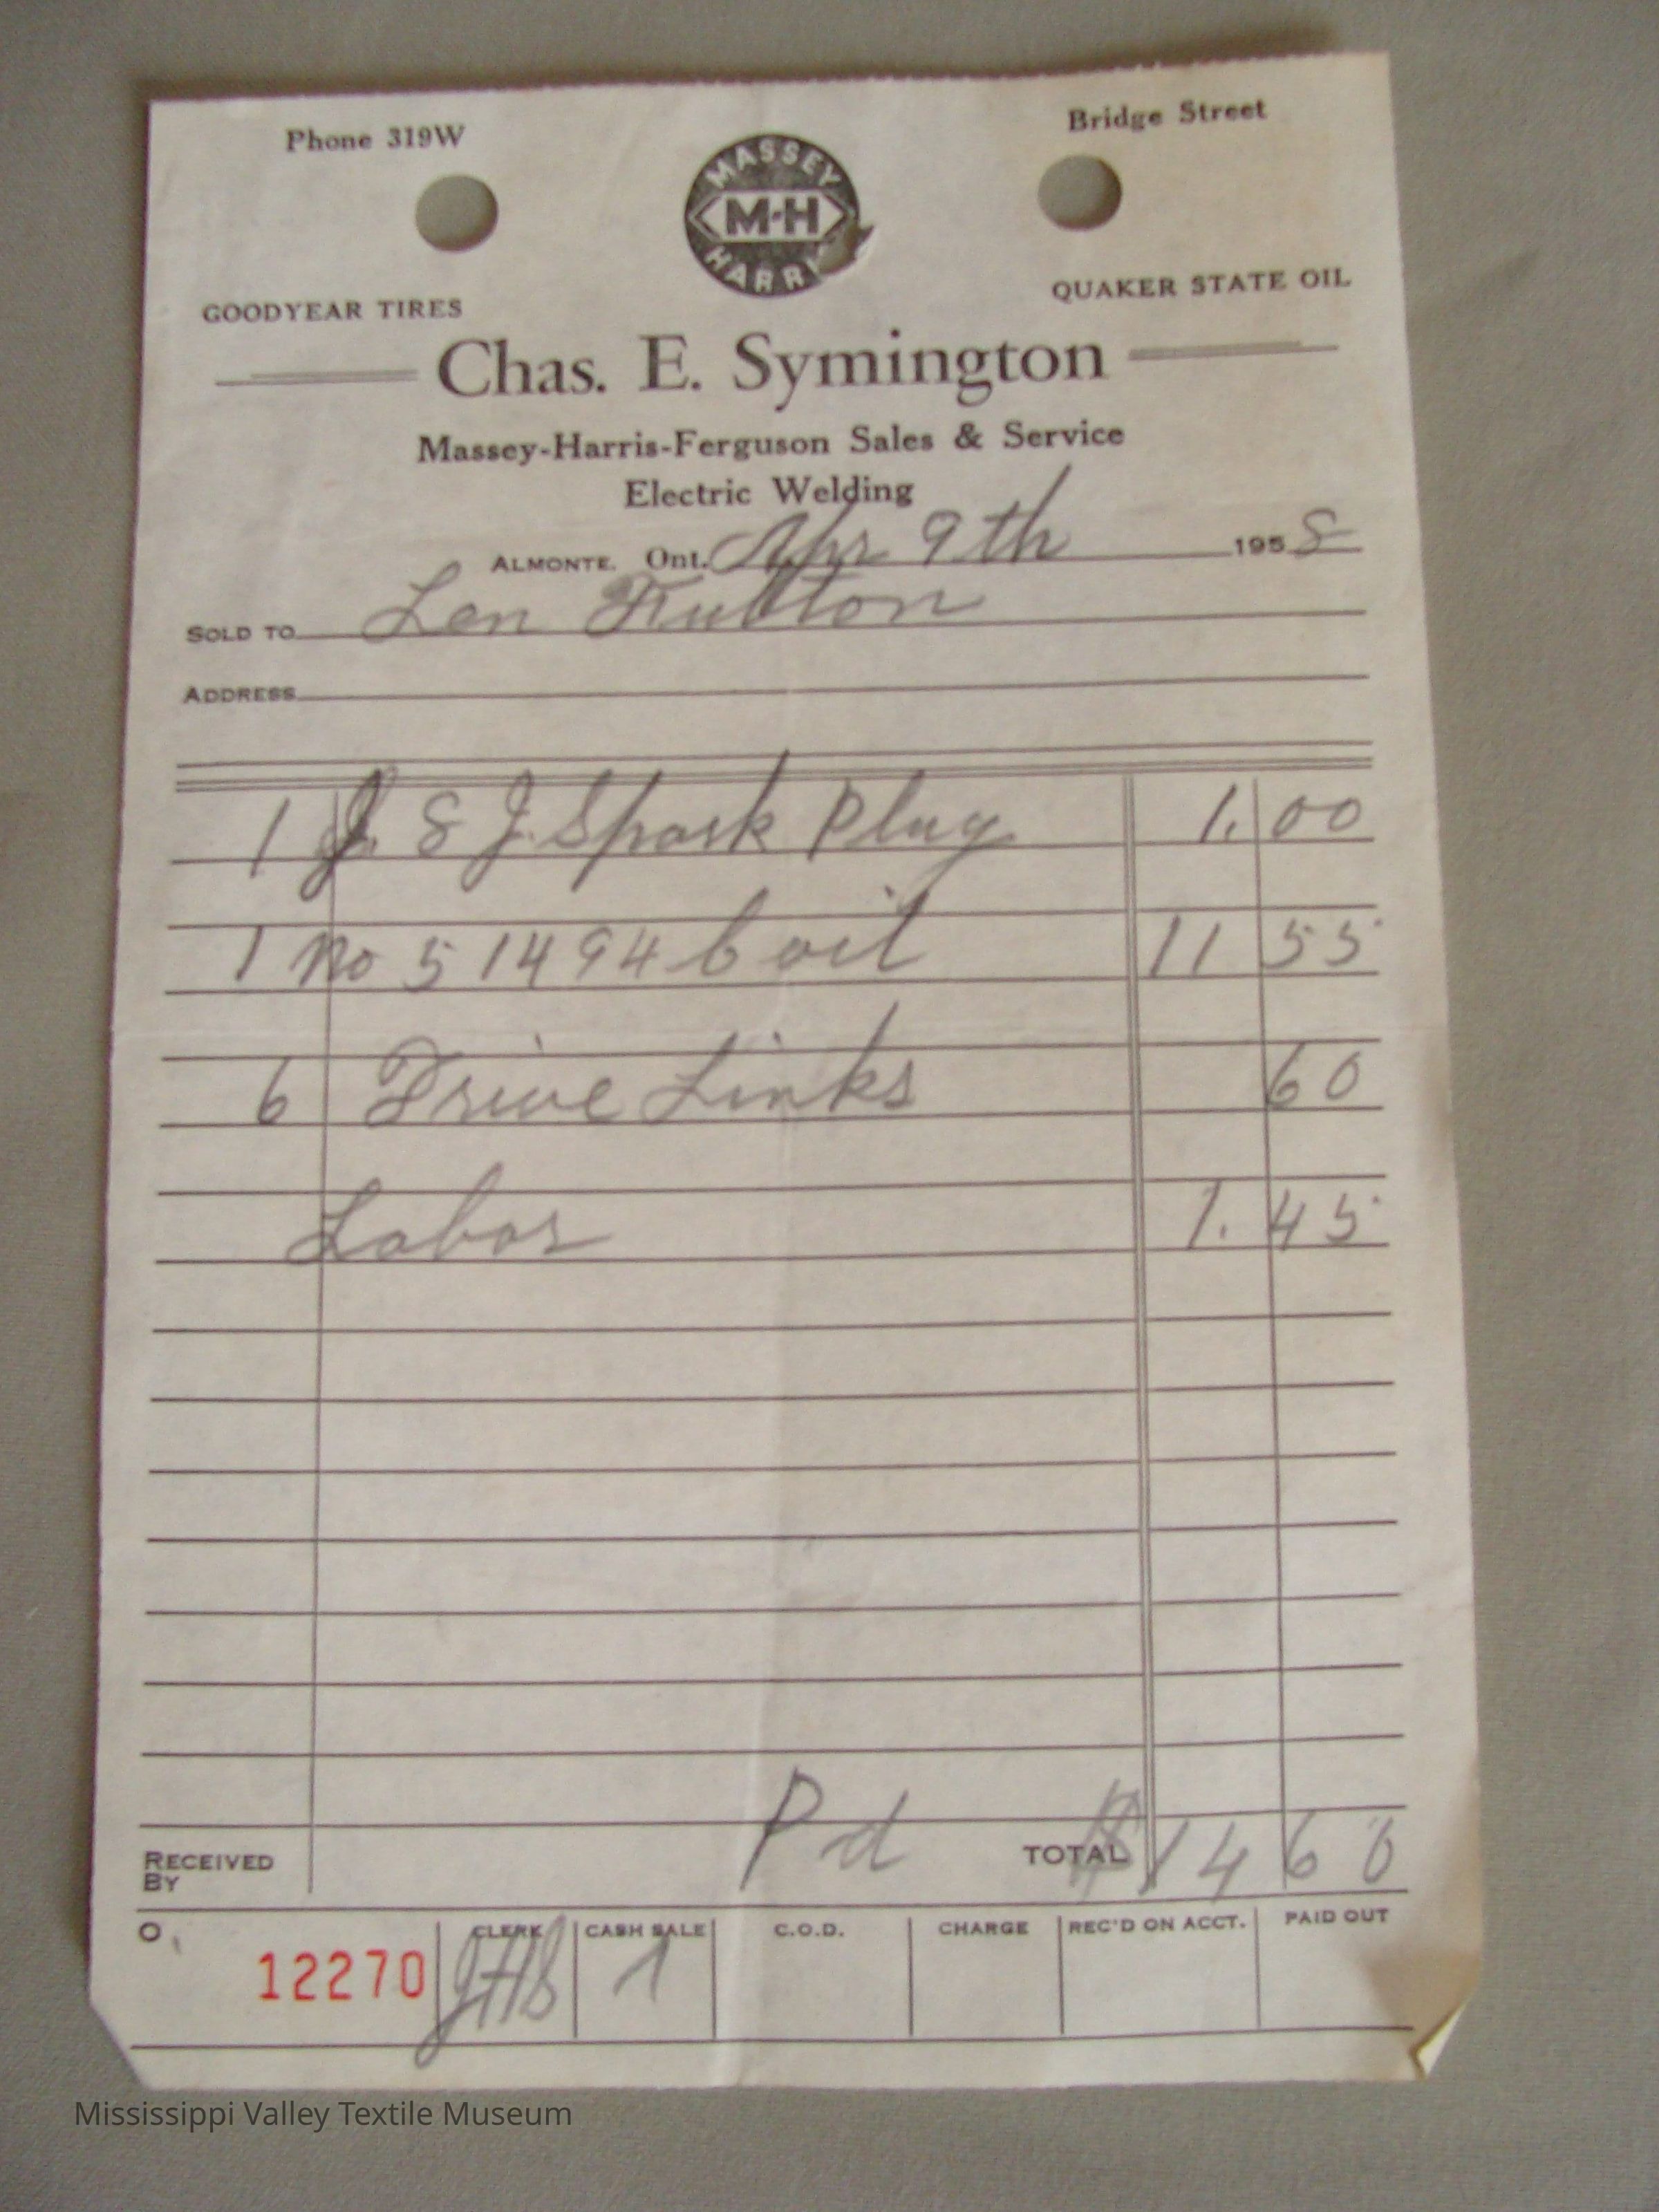 Phone 319W
Bridge Street
MASSEY
M-H
HARRI
GOODYEAR TIRES
QUAKER STATE OIL
Chas. E. Symington
Massey-Harris-Ferguson Sales & Service
Electric Welding
ALMONTE, Ont. Apr 9th 1958
SOLD TO Len
ADDRESS
1 J 8 J. Spark Plug 1.00
1 No 51494 Coil 11 55
6 Drive Links 60
Labor 1.45
Pd
RECEIVED BY
TOTAL $14 60
O
12270
CLERK
CASH SALE 1
C.O.D.
CHARGE
REC'D ON ACCT.
PAID OUT
Mississippi Valley Textile Museum